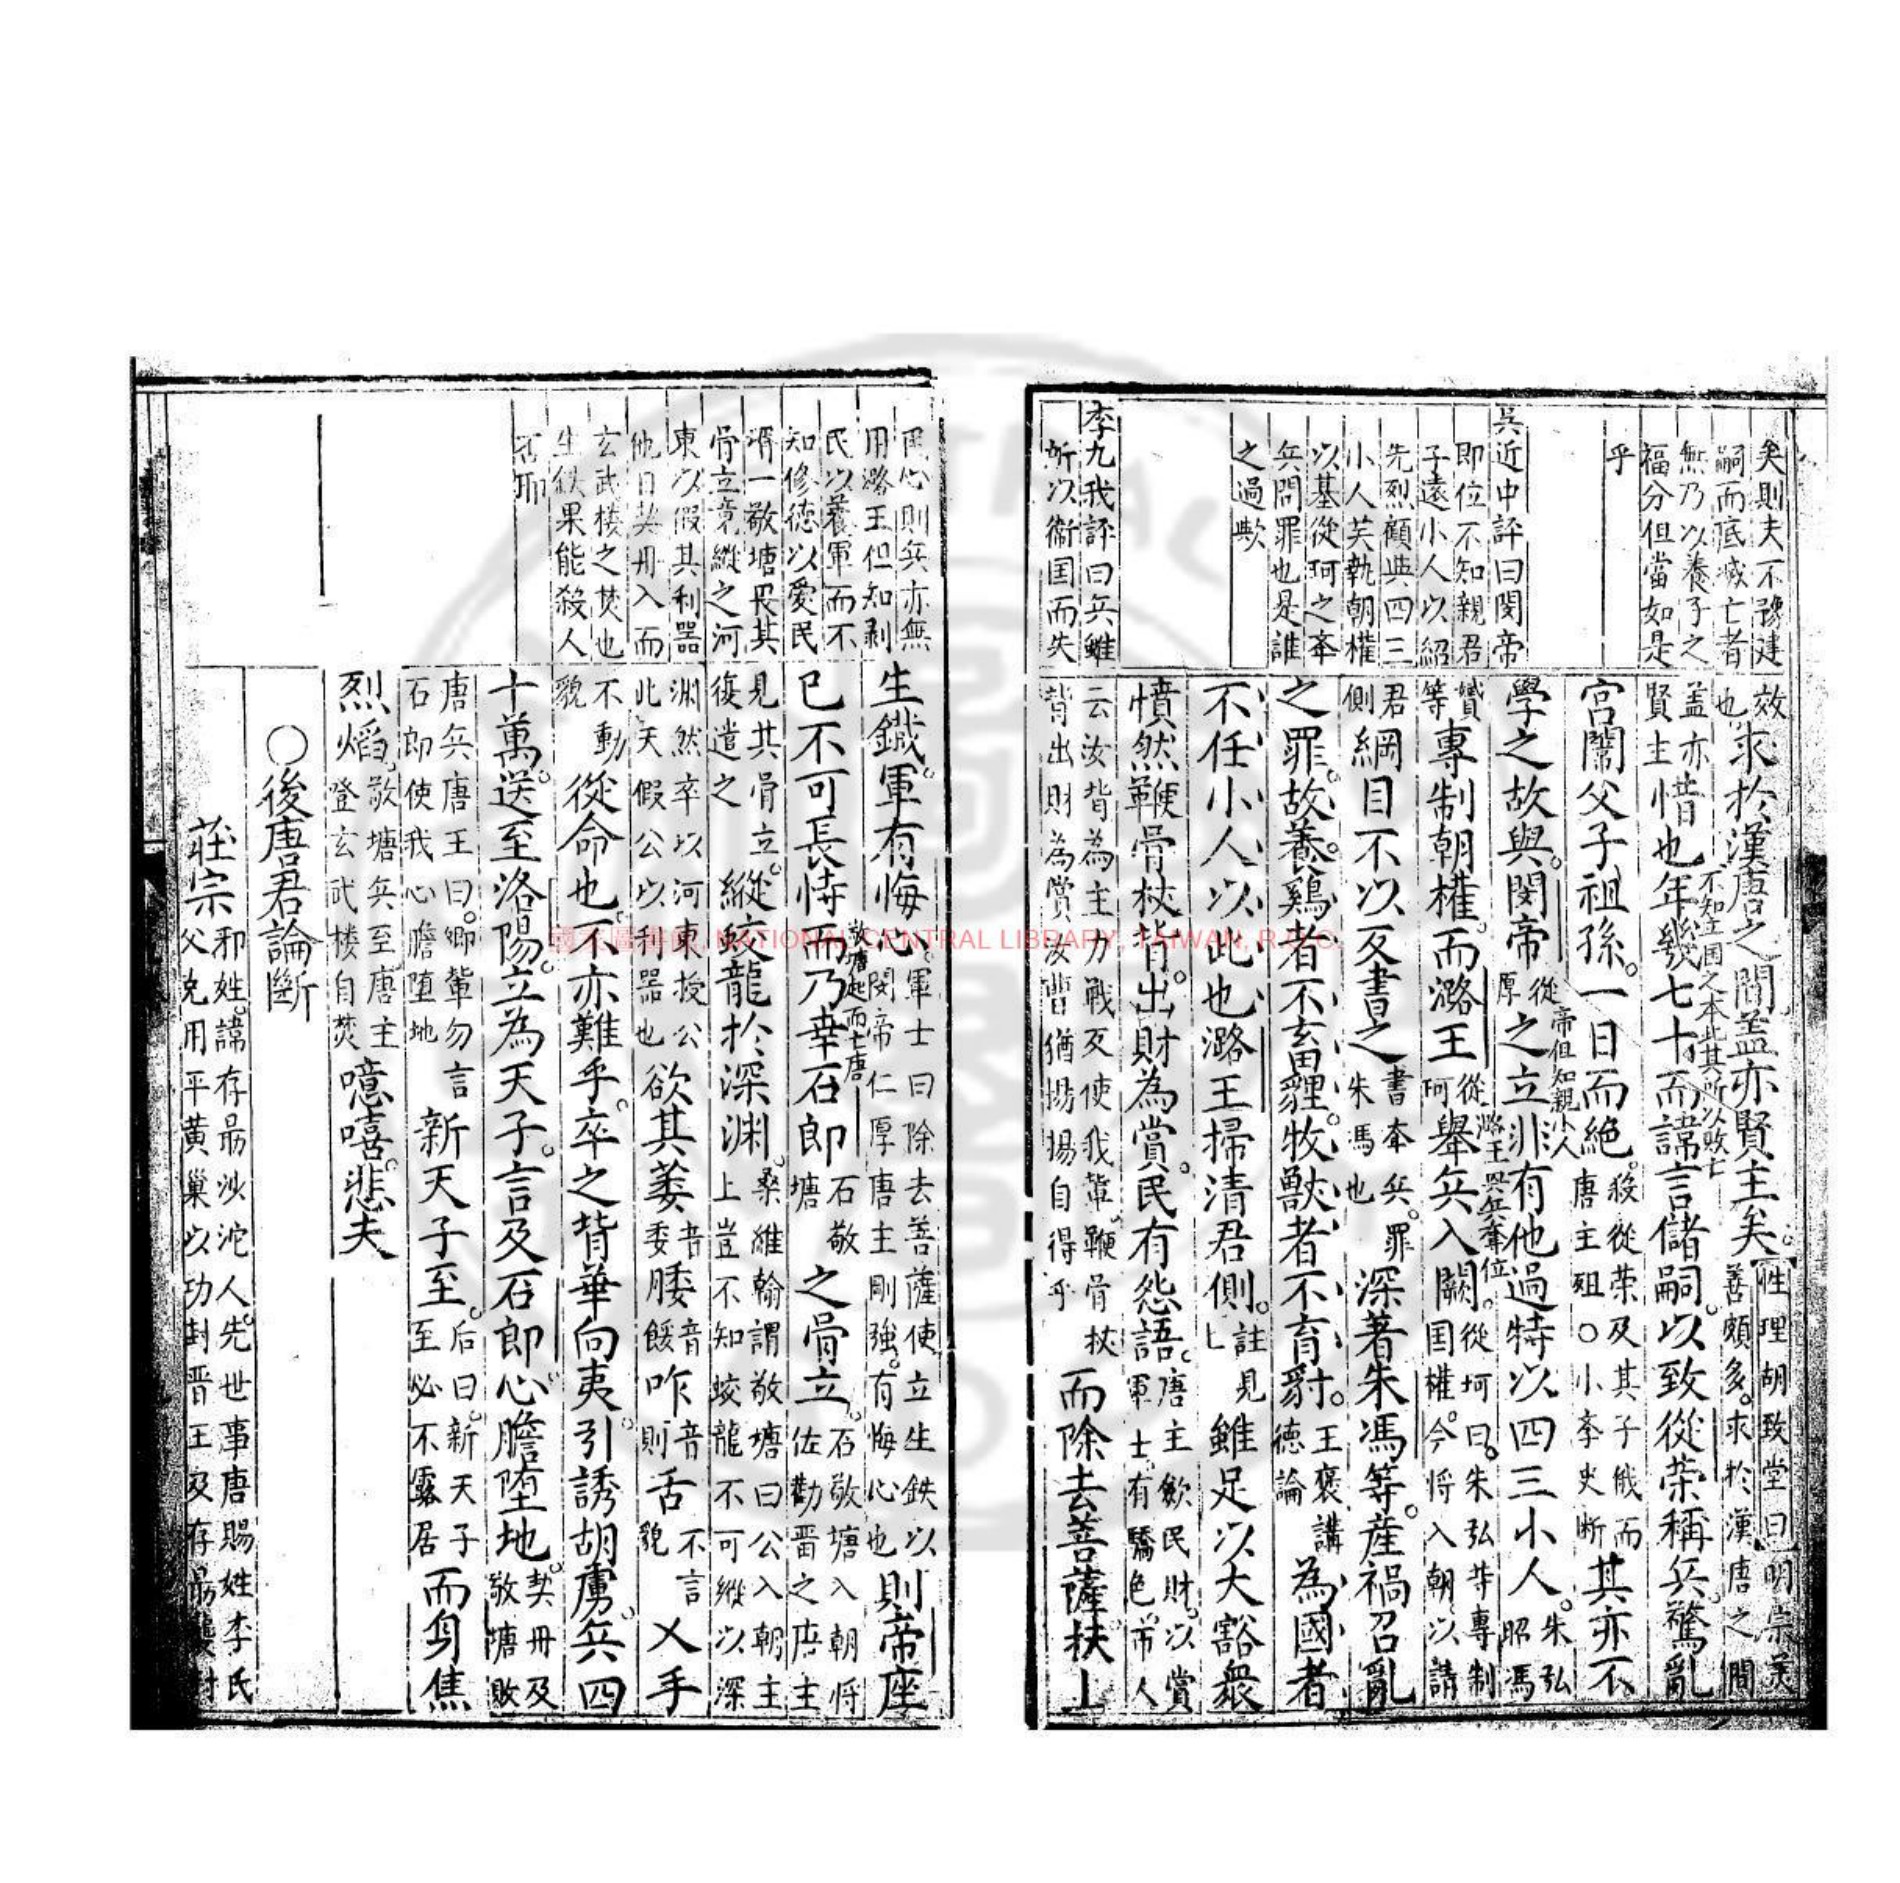 矣則夫不豫建
嗣而底滅亡者
無乃以養子之
福分但當如是
乎
吳近中評曰閔帝
即位不知親君
子遠小人以紹
先烈顧與四三
小人芙執朝權
以基從珂之牽
兵問罪也是誰
之過歟
李九我評曰兵雖
所以衞国而失
效也求於漢唐之間蓋亦賢主矣性理胡致堂曰明宗美善頗多求於漢唐之間
盖亦賢主惜也年幾七十而諱言儲嗣以致從荣稱兵驚亂
不知立国之本此其所以敗亡
宮闈父子祖孫一日而絶殺從荣及其子戗而唐主殂○小李史断其亦不
學之故與閔帝從厚之立非有他過特以四三小人朱弘昭馮
帝但知親小人
贇等專制朝權而潞王從珂舉兵入闕從珂曰朱弘等專制国權今將入朝以請
潞王興兵奪位
君側綱目不以反書之書牽兵罪朱馮也深著朱馮等産禍召亂
之罪故養鷄者不畜貍牧獸者不育豺王褒講德論為國者
不任小人以此也潞王掃清君側註見上雖足以大豁衆
憤然鞭骨杖背出財為賞民有怨語唐主歛民財以賞軍士有驕色市人
云汝背為主力戰反使我輩鞭骨杖背出財為賞汝曹猶揚揚自得乎而除去菩薩扶上
用潞王但知剥
民以養軍而不
知修德以愛民
壻一敬塘畏其
骨立竟縱之河
東以假其利器
他日契丹入而
玄武楼之焚也
生鉄果能殺人
生鐵軍有悔心軍士曰除去菩薩使立生鉄以閔帝仁厚唐主剛強有悔心也則帝座
已不可長恃而乃幸石郎石敬塘之骨立石敬塘入朝將佐勸畱之唐主
敬塘起而亡唐
見其骨立復遣之縱蛟龍於深淵桑維翰謂敬塘曰公入朝主上豈不知蛟龍不可縱以深
渊然卒以河東授公此天假公以利器也欲其萎音委腇音餒咋音則舌不言貌乂手
不動貌從命也不亦難乎卒之背華向夷引誘胡虜兵四
十萬送至洛陽立為天子言及石郎心膽堕地契丹及敬塘敗
唐兵唐王曰卿輩勿言石郎使我心膽堕地新天子至后曰新天子至必不露居而身焦
烈熖敬塘兵至唐主登玄武楼自焚噫嘻悲夫
○後唐君論斷
莊宗邪姓諱存勗沙沱人先世事唐賜姓李氏父克用平黄巢以功封晋王及存勗